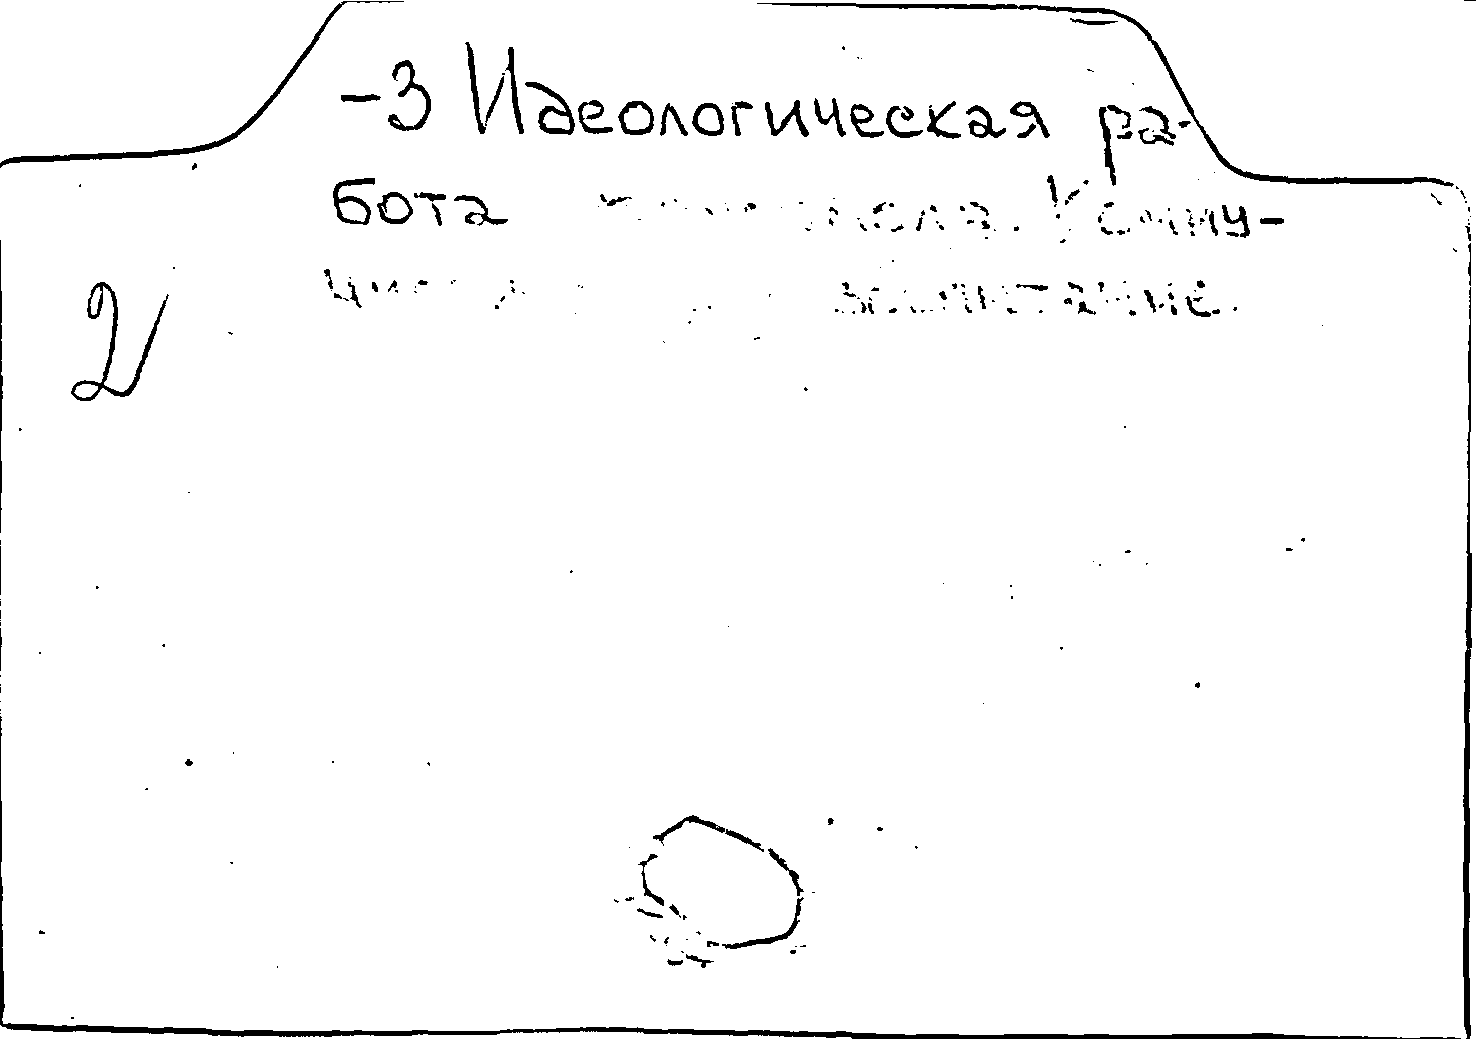 -3 Идеологическая ра-
бота комсомола. Комму-
нист воспитание.
2